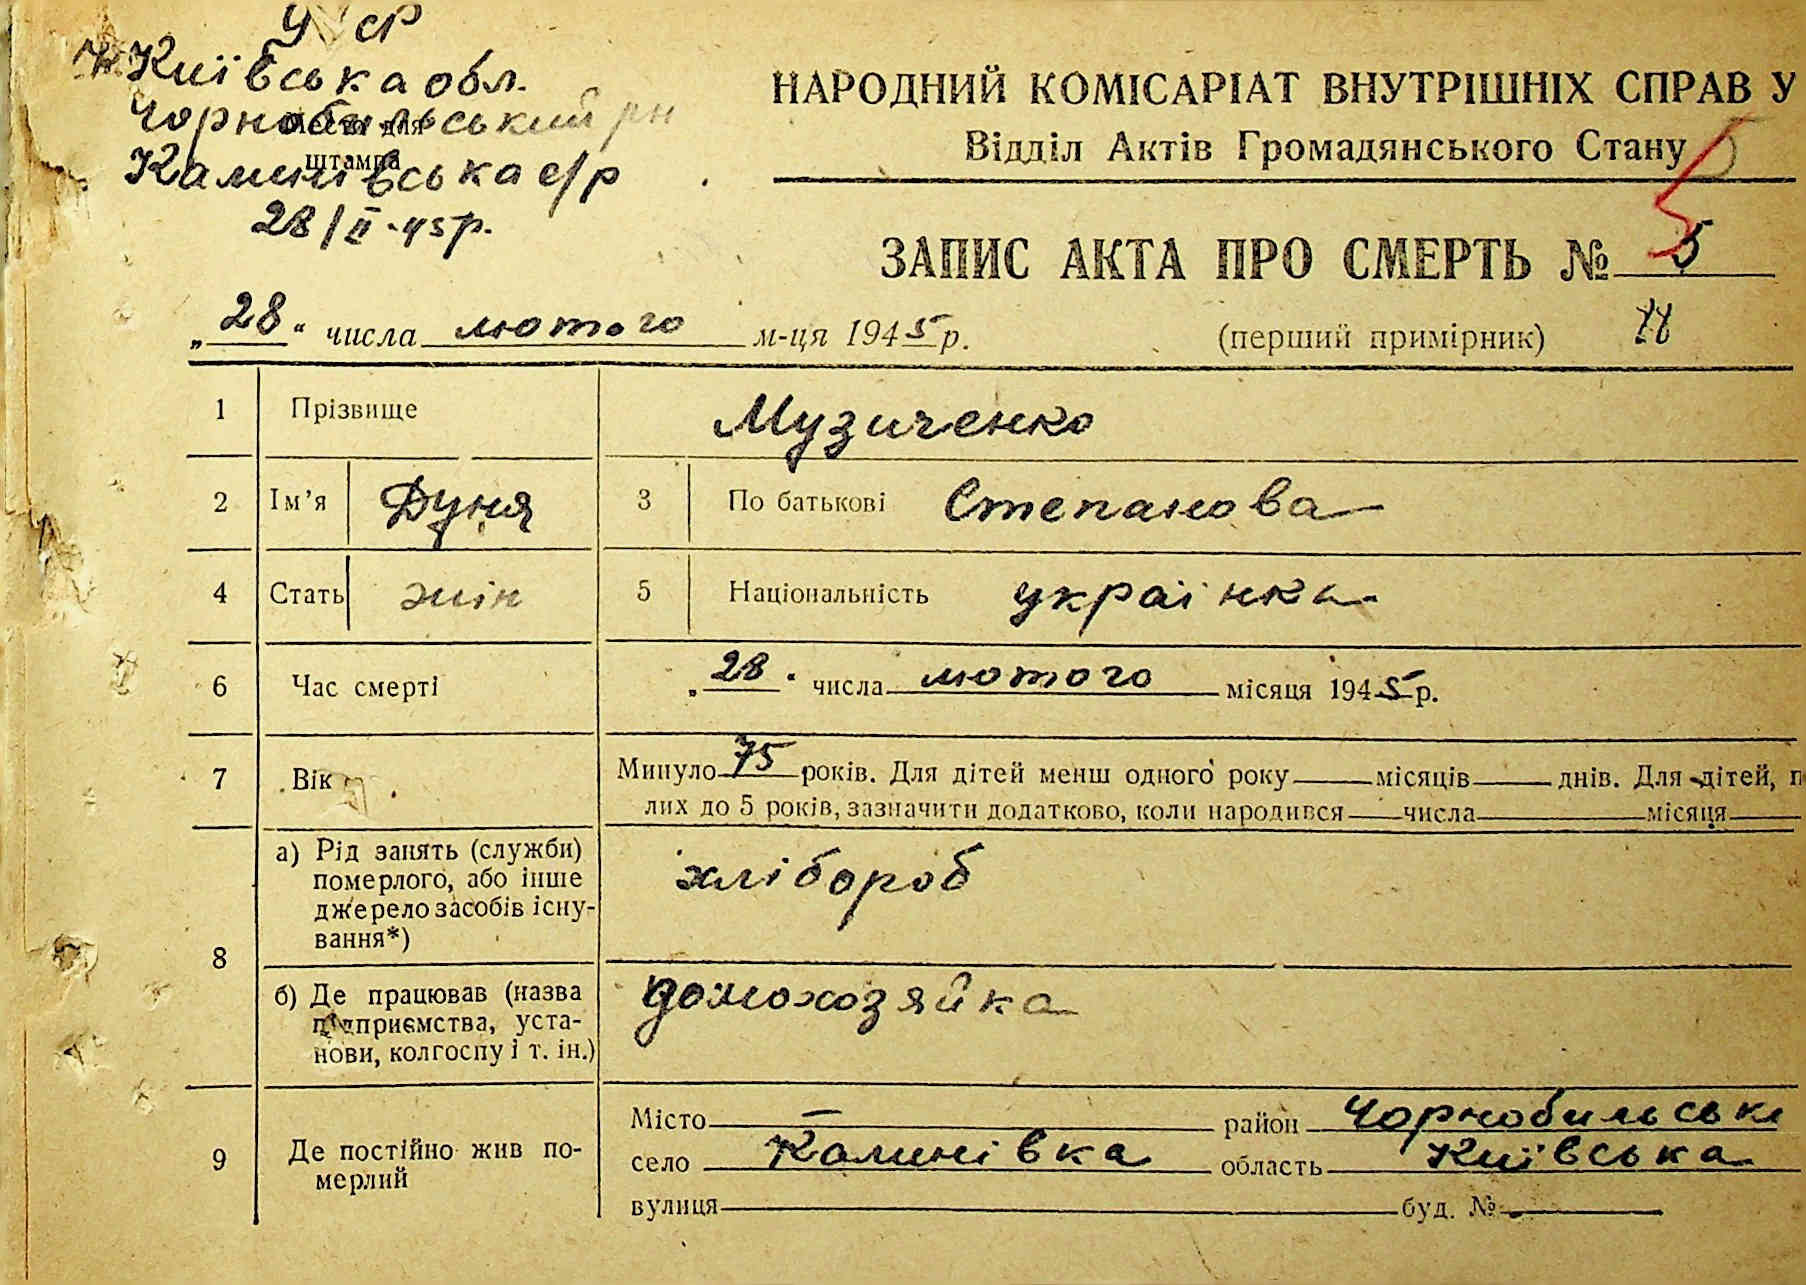 УСР
Київська обл.
Чорнобильський рн
Місце для
штампа
Калинівська с/р
28/II-45р.
НАРОДНИЙ КОМІСАРІАТ ВНУТРІШНІХ СПРАВ У
Відділ Актів Громадянського Стану
ЗАПИС АКТА ПРО СМЕРТЬ № 5
„28“ числа лютого м-ця 1945 р.
(перший примірник)
1 Прізвище Музиченко
2 Ім’я Дуня 3 По батькові Степанова
4 Стать жін 5 Національність українка
6 Час смерті „28“ числа лютого місяця 1945 р.
7 Вік Минуло 75 років. Для дітей менш одного року місяців днів. Для дітей, п
лих до 5 років, зазначити додатково, коли народився числа місяця
8 а) Рід занять (служби)
померлого, або інше
джерело засобів існу-
вання*)
хлібороб
б) Де працював (назва
підприємства, уста-
нови, колгоспу і т. ін.)
домохозяйка
9 Де постійно жив по-
мерлий
Місто — район Чорнобильськ
село Калинівка область Київська
вулиця буд. №